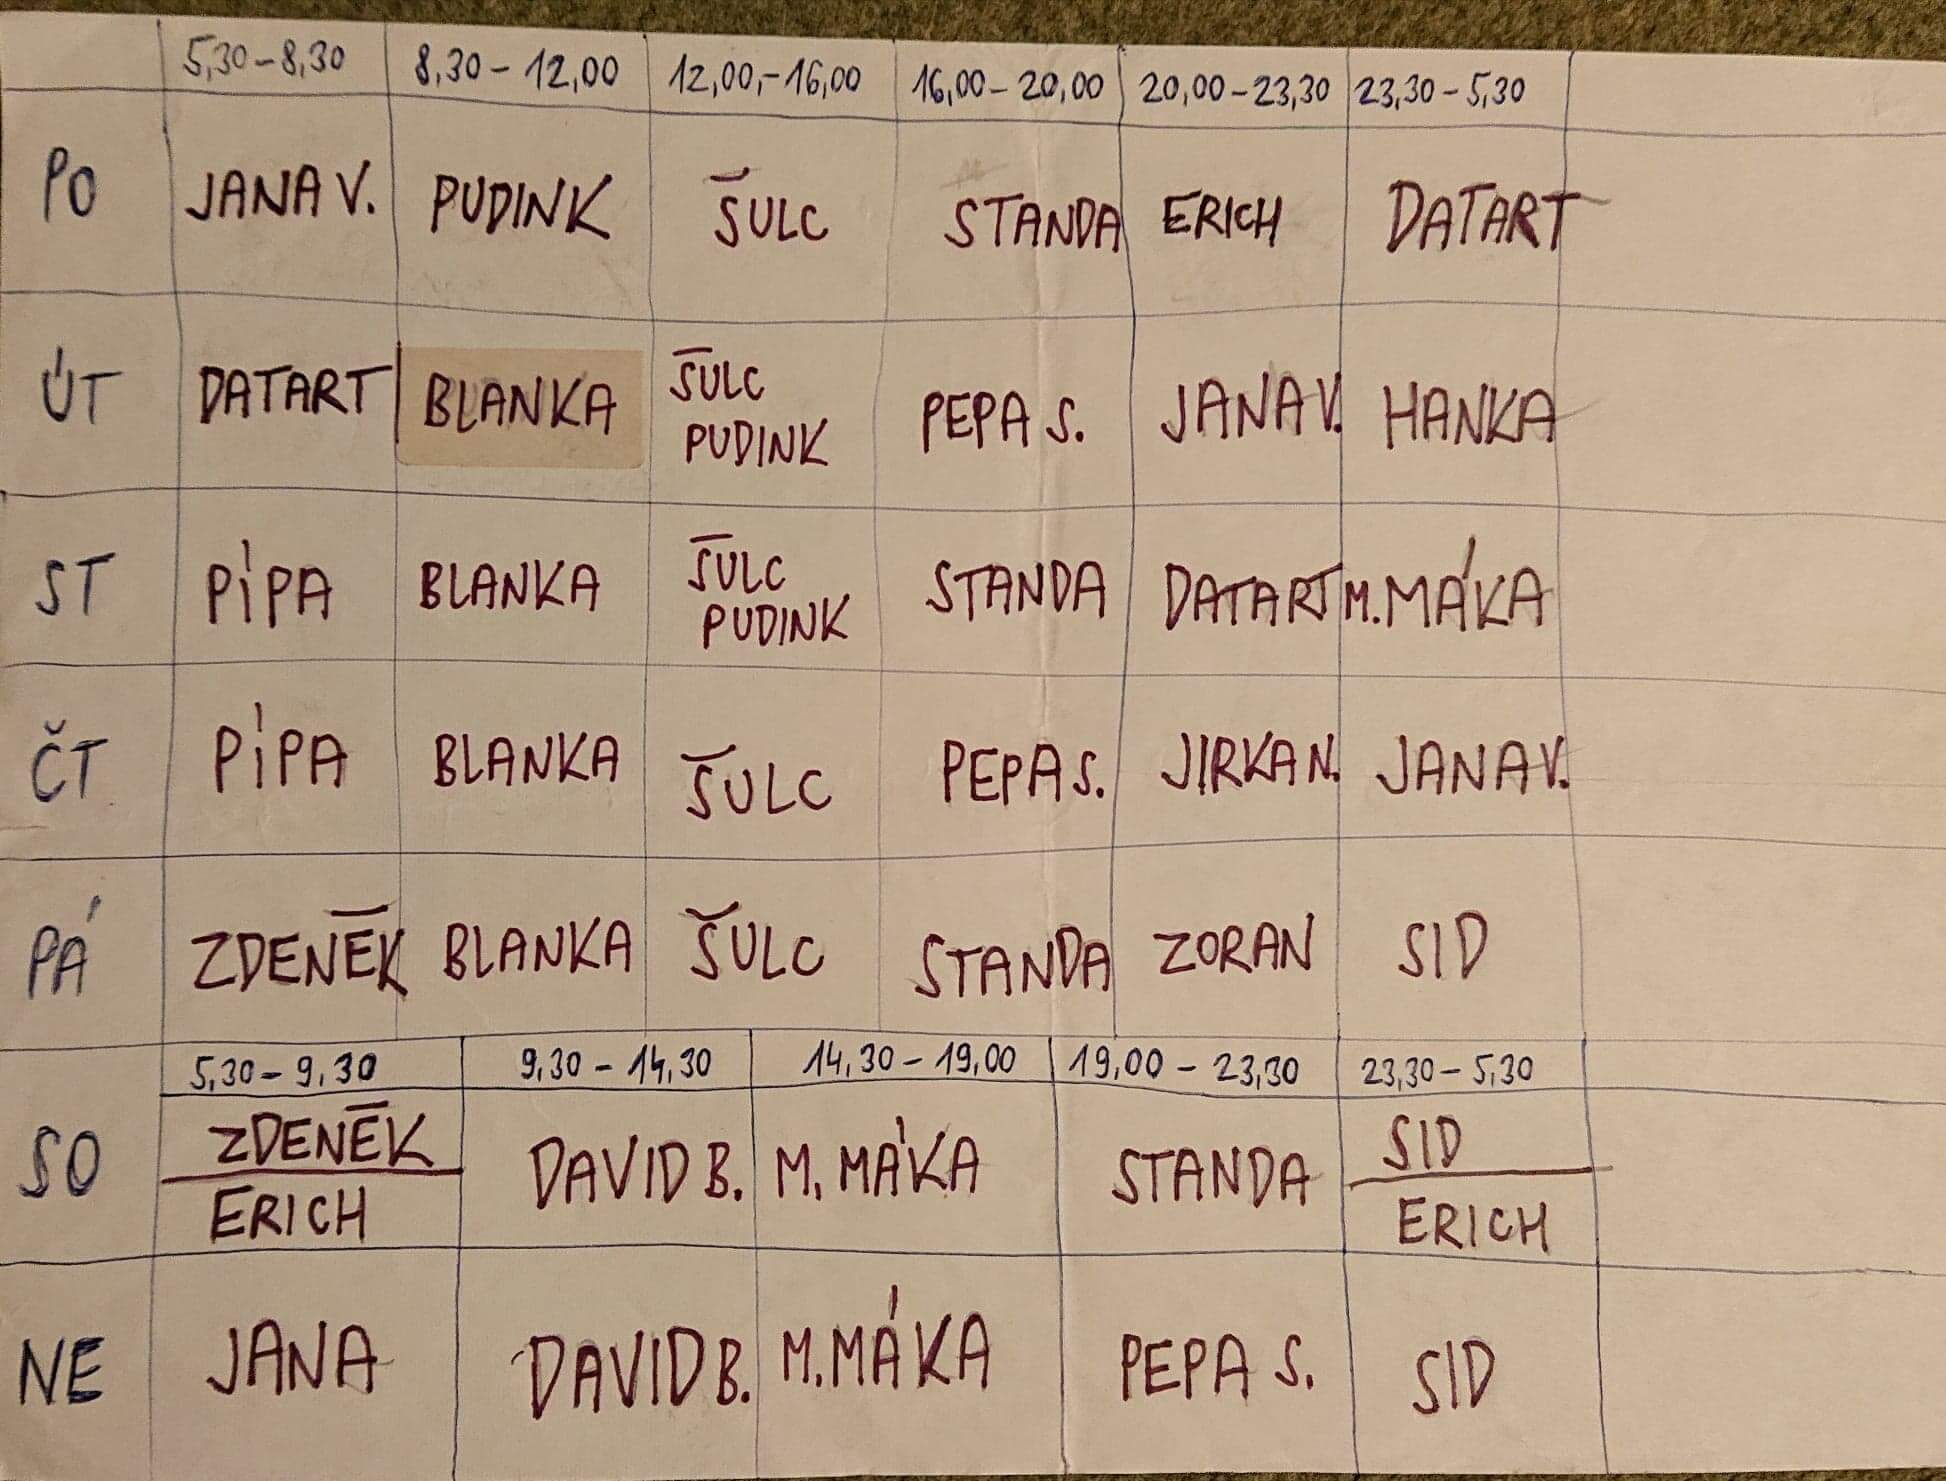 5,30-8,30 8,30-12,00 12,00,-16,00 16,00-20,00 20,00-23,30 23,30-5,30
PO JANA V. PUDINK ŠULC STANDA ERICH DATART
ÚT DATART BLANKA ŠULC PUDINK PEPA S. JANA V. HANKA
ST PÍPA BLANKA ŠULC PUDINK STANDA DATART M. MÁKA
ČT PÍPA BLANKA ŠULC PEPA S. JIRKA N. JANA V.
PÁ ZDENĚK BLANKA ŠULC STANDA ZORAN SID
5,30-9,30 9,30-14,30 14,30-19,00 19,00-23,30 23,30-5,30
SO ZDENĚK ERICH DAVID B. M. MÁKA STANDA SID ERICH
NE JANA DAVID B. M. MÁKA PEPA S. SID